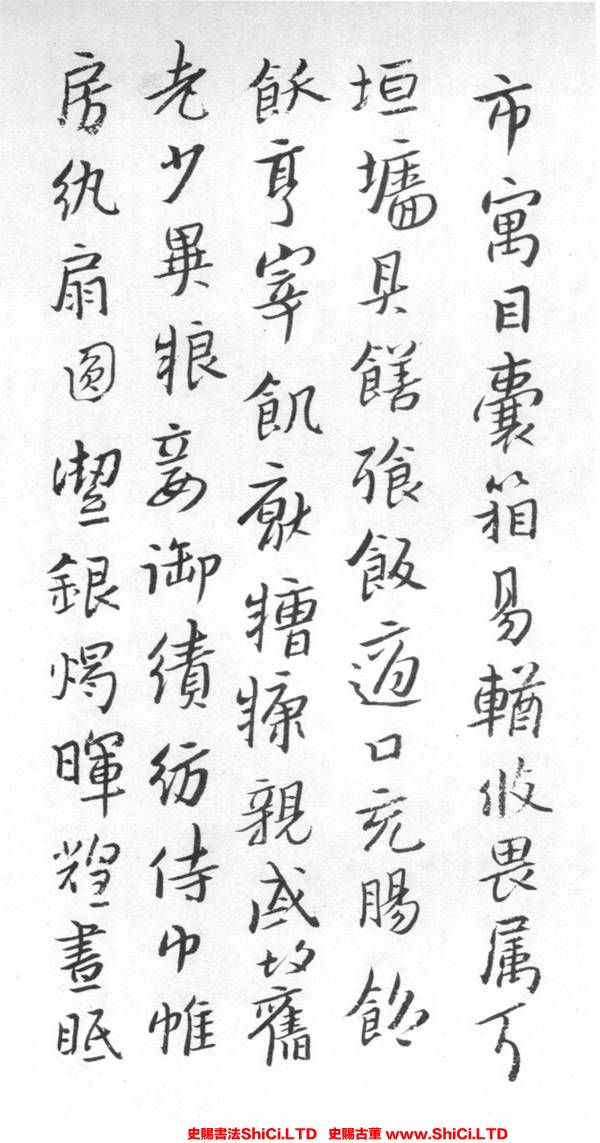 市寓目囊箱易輶攸畏属耳
垣墻具饍飡飯適口充腸飽
飫亨宰飢厭糟糠親戚故舊
老少異粮妾御績紡侍巾帷
房紈扇圓潔銀燭暐煌晝眠
史賜書法ShiCi.LTD 史賜古董 www.ShiCi.LTD